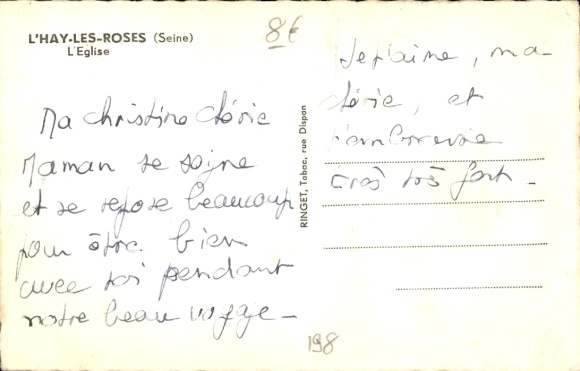 L'HAY-LES-ROSES (Seine)
L'Eglise
8€
Ma christine chérie
Maman se soigne
et se repose beaucoup
pour être bien
avec toi pendant
notre beau voyage -
RINGET, Tabac, rue Dispan
Je t'aime, ma
chérie, et
t'embrasse
très très fort -
198